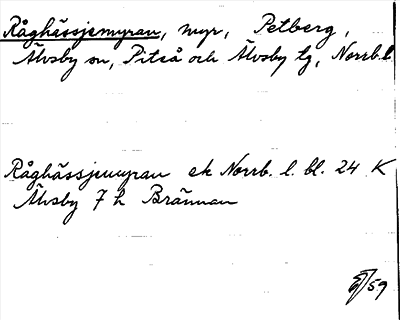 Råghässjemyran, myr, Petberg,
Älvsby sn, Piteå och Älvsby tg, Norrb.l.
Råghässjemyran ek Norrb. l. bl. 24 K
Älvsby 7 h Brännan
/59